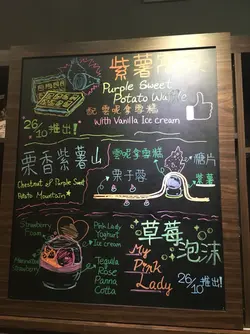 紫薯
Purple Sweet
Potato Waffle
配雲呢拿雪糕
with Vanilla Ice cream
26/10 推出!
栗香紫薯山
Chestnut of Purple Sweet
Potato Mountain
雲呢拿雪糕
栗子蓉
脆片
紫薯
Strawberry
Foam
Marinated
Strawberry
Pink Lady
Yoghurt
Ice cream
Tequila
Rose
Panna
Cotta
草莓
泡沫
My
Pink
Lady
26/10 推出!